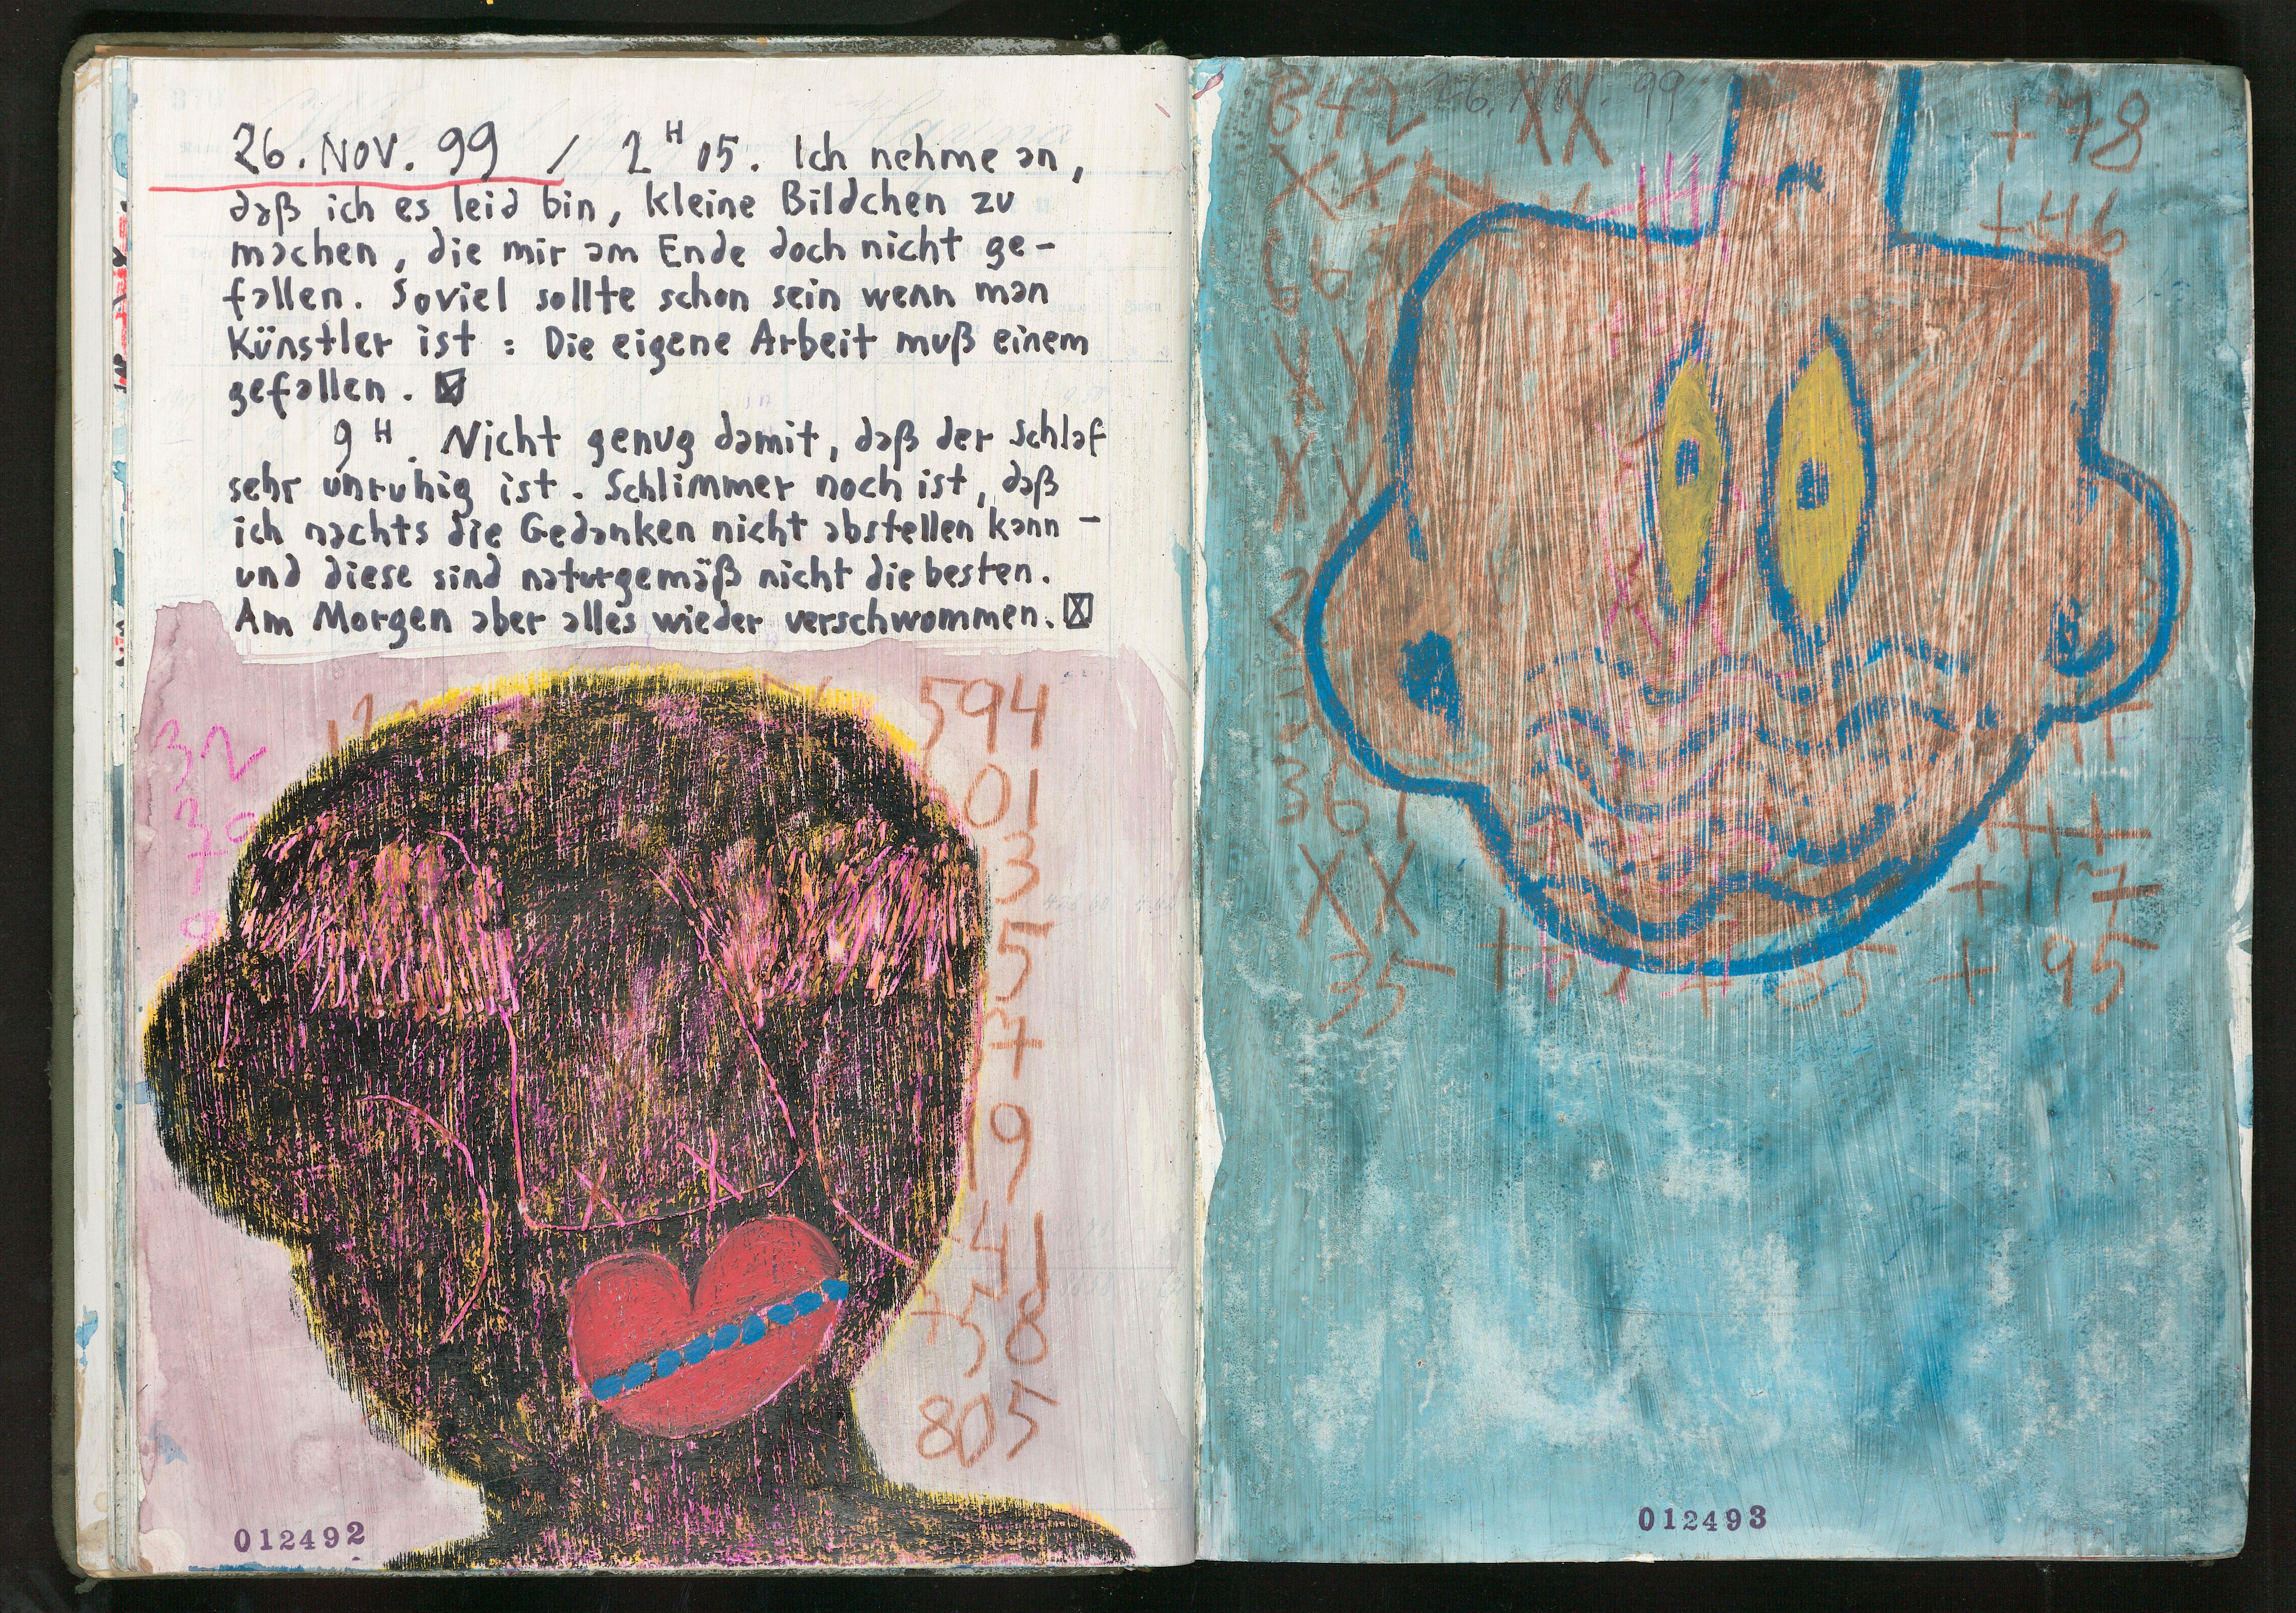 26. NOV. 99 / 2 H 05. Ich nehme an,
daß ich es leid bin, kleine Bildchen zu
machen, die mir am Ende doch nicht ge-
fallen. Soviel sollte schon sein wenn man
Künstler ist : Die eigene Arbeit muß einem
gefallen.
9 H. Nicht genug damit, daß der Schlaf
sehr unruhig ist. Schlimmer noch ist, daß
ich nachts die Gedanken nicht abstellen kann -
und diese sind naturgemäß nicht die besten.
Am Morgen aber alles wieder verschwommen.
32
30
7
9
594
01
3
5
7
19
41
358
805
012492
842 XX +78
26. NOV. 99
XX
+46
XX
361
XX
+117
35 + 85 + 95
012493